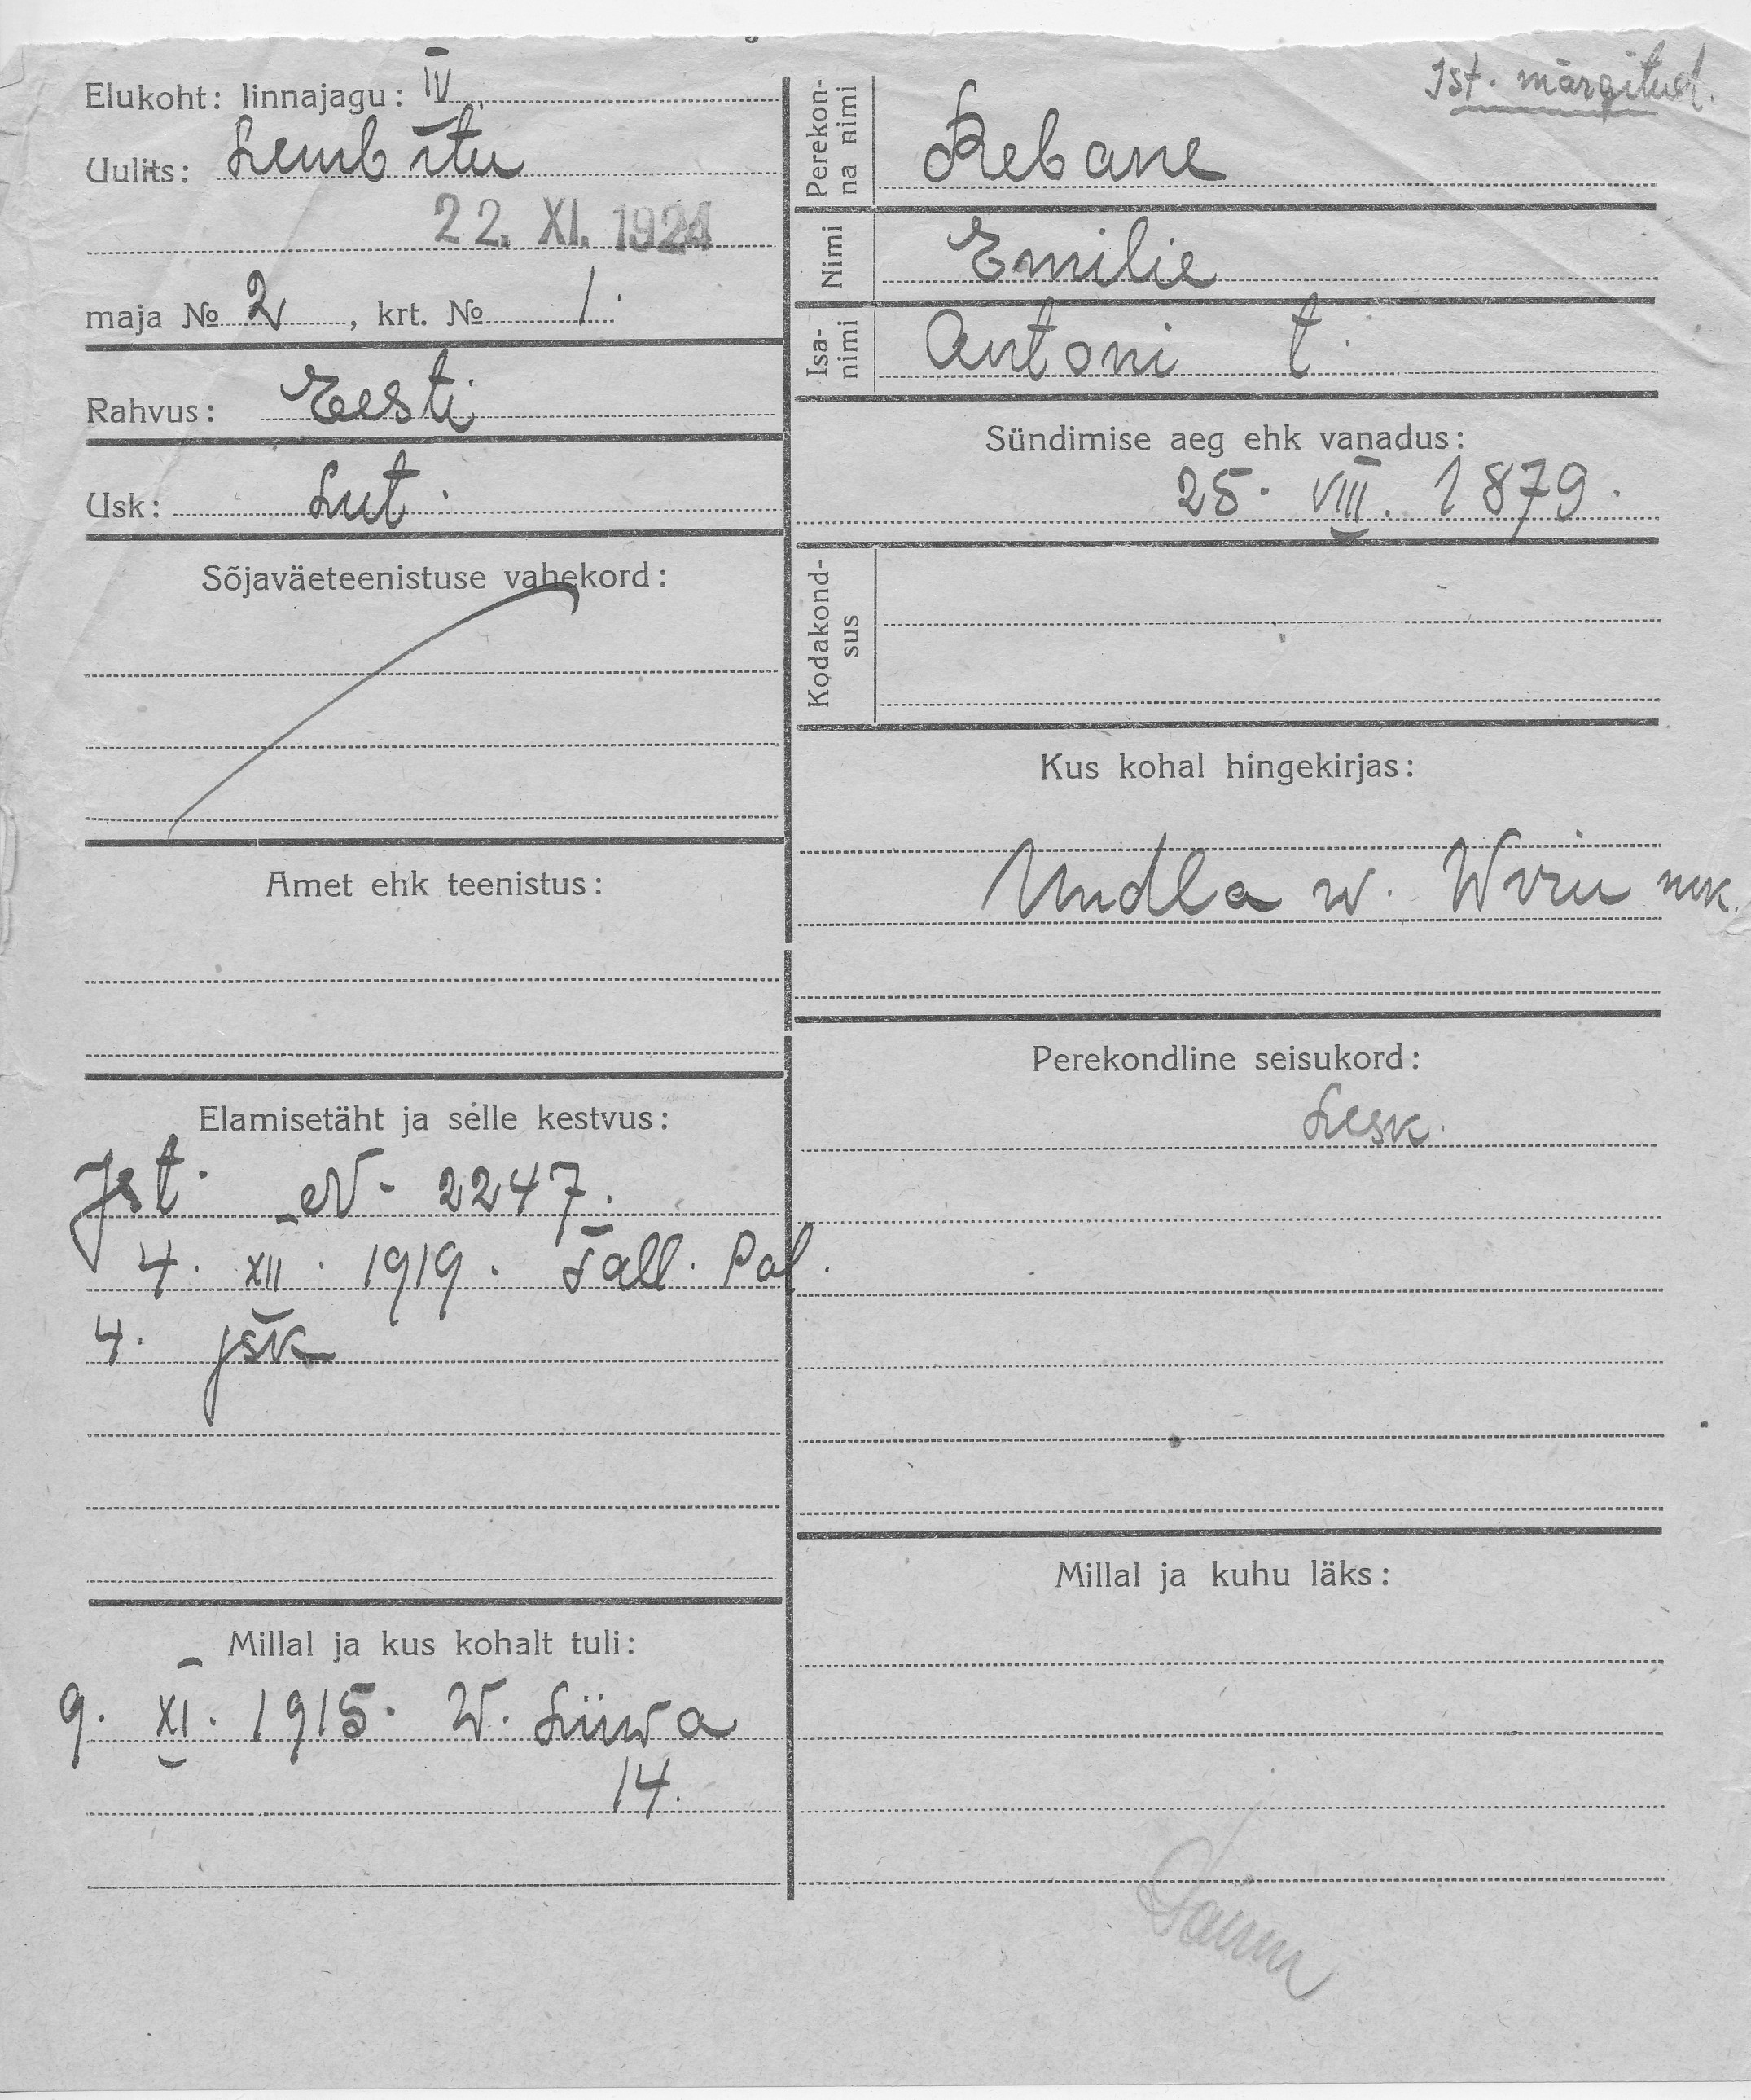 Elukoht: linnajagu: IV
Uulits: Lembitu
22. XI. 1924
maja № 2, krt. № 1.
Rahvus: Eesti
Usk: Lut.
Sõjaväeteenistuse vahekord:
Amet ehk teenistus:
Elamisetäht ja selle kestvus:
Jst. N- 2247.
4. XII. 1919. Tall. Pol.
4. jsk
Millal ja kus kohalt tuli:
9. XI. 1915. W. Liiwa
14.
Ist. märgitud.
Perekon-
na nimi
Rebane
Nimi
Emilie
Isa-
nimi
Antoni t.
Sündimise aeg ehk vanadus:
25. VIII. 1879.
Kodakond-
sus
Kus kohal hingekirjas:
Undla w. Wiru mk.
Perekondline seisukord:
Lesk.
Millal ja kuhu läks: